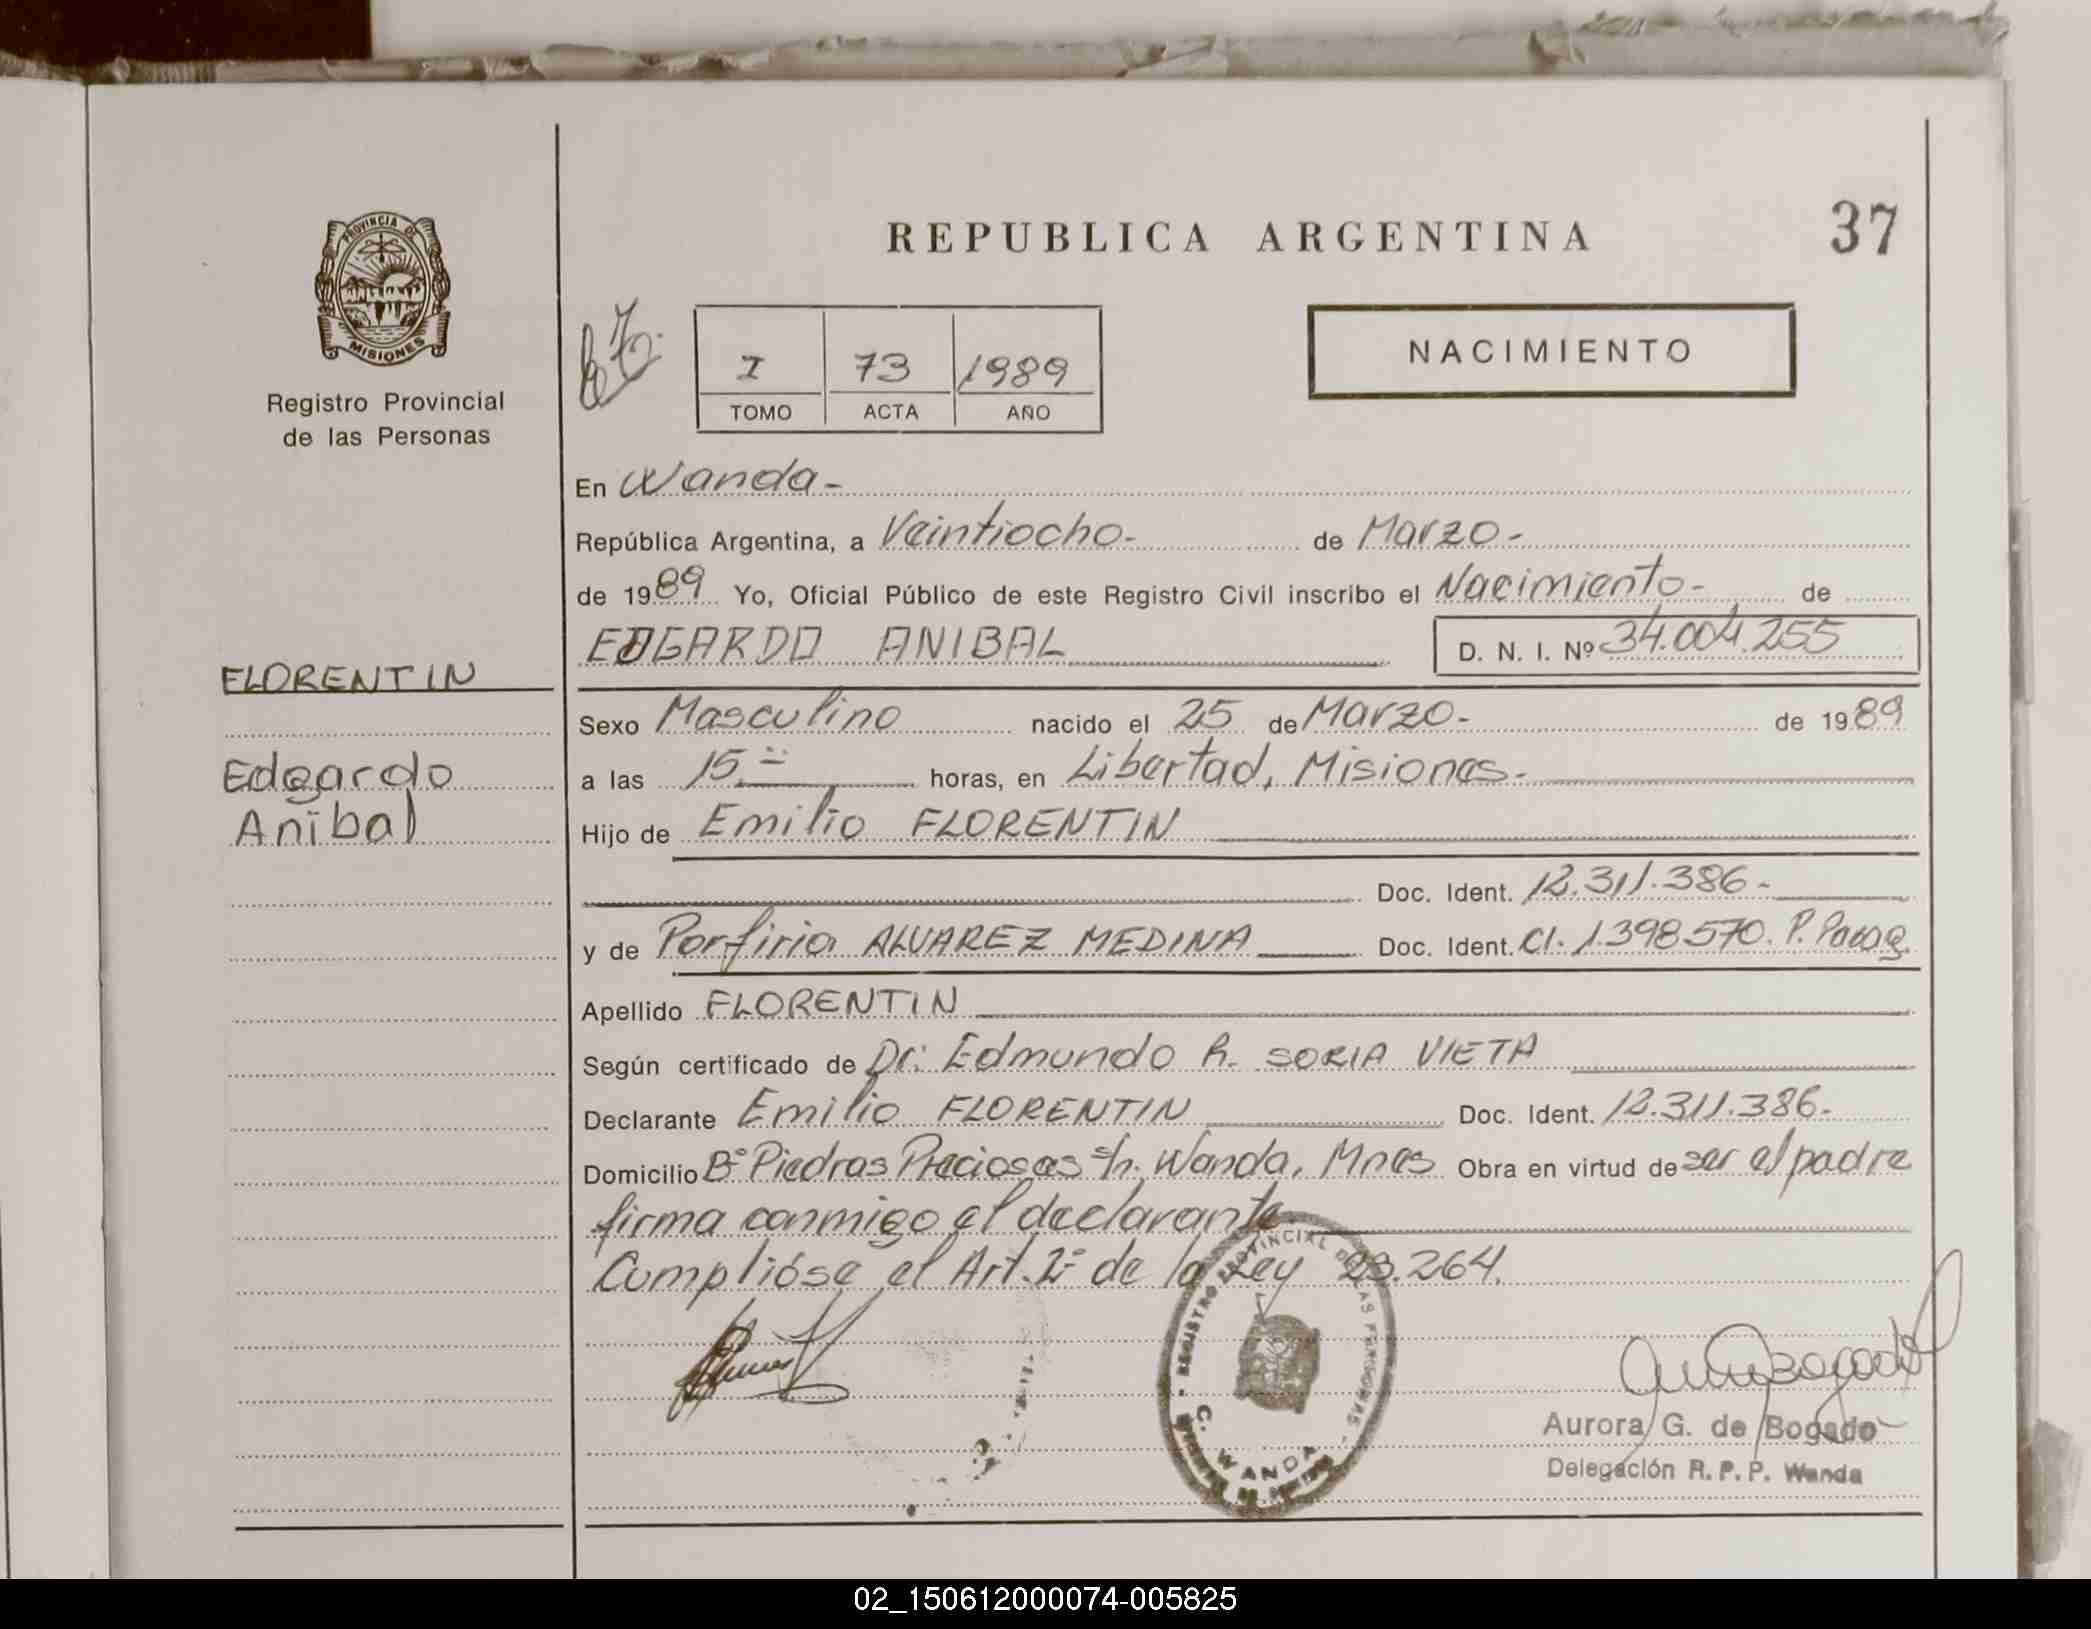 PROVINCIA DE
MISIONES
Registro Provincial
de las Personas
REPUBLICA ARGENTINA
37
I 73 1989
TOMO ACTA AÑO
NACIMIENTO
En Wanda-
República Argentina, a Veintiocho- de Marzo-
de 1989 Yo, Oficial Público de este Registro Civil inscribo el Nacimiento- de
EDGARDO ANIBAL D. N. I. Nº 34.004.255
FLORENTIN
Edgardo
Anibal
Sexo Masculino nacido el 25 de Marzo- de 1989
a las 15.- horas, en Libertad, Misiones-
Hijo de Emilio FLORENTIN
Doc. Ident. 12.311.386-
y de Porfiria ALVAREZ MEDINA Doc. Ident. CI. 1.398.570. P. Parag
Apellido FLORENTIN
Según certificado de Dr: Edmundo R. SORIA VIETA
Declarante Emilio FLORENTIN Doc. Ident. 12.311.386-
Domicilio Bº Piedras Preciosas s/n. Wanda, Mnes Obra en virtud de ser el padre
firma conmigo el declarante.
Cumplióse el Art. 2º de la Ley 23.264.
REGISTRO PROVINCIAL DE LAS PERSONAS
WANDA
Aurora G. de Bogado
Delegación R. P. P. Wanda
02_150612000074-005825